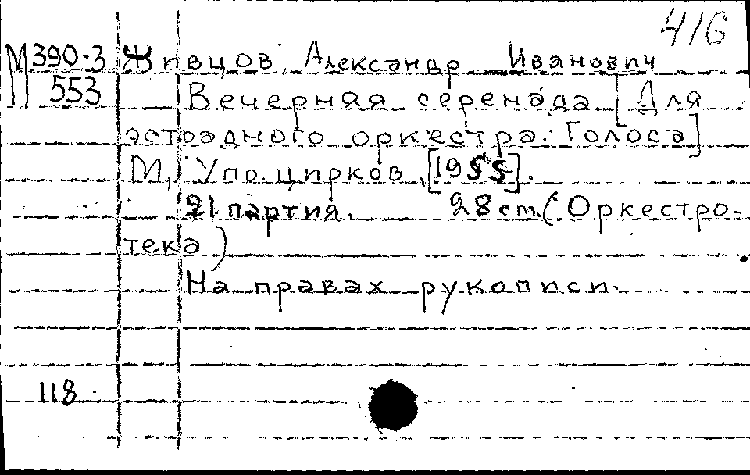 416
М 390-3 Живцов, Александр Иванович
553 Вечерняя серенада [Для
эстрадного оркестра. Голоса]
М., Упр. цирков, [1955].
21 партия. 28 cm. (Оркестро-
тека)
На правах рукописи.
118